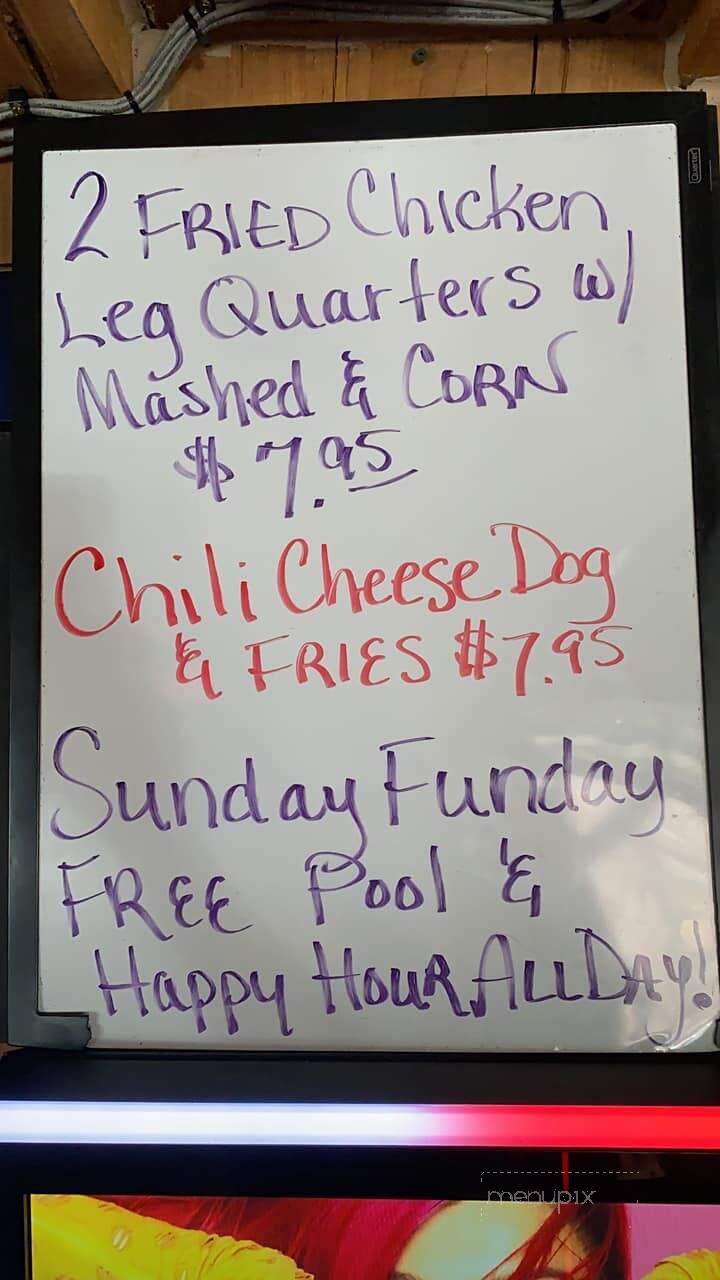 Quartet
2 FRIED Chicken
Leg Quarters w/
Mashed & CORN
$7.95
Chili Cheese Dog
& FRIES $7.95
Sunday Funday
FREE Pool &
Happy HOUR ALL DAY!
menupix